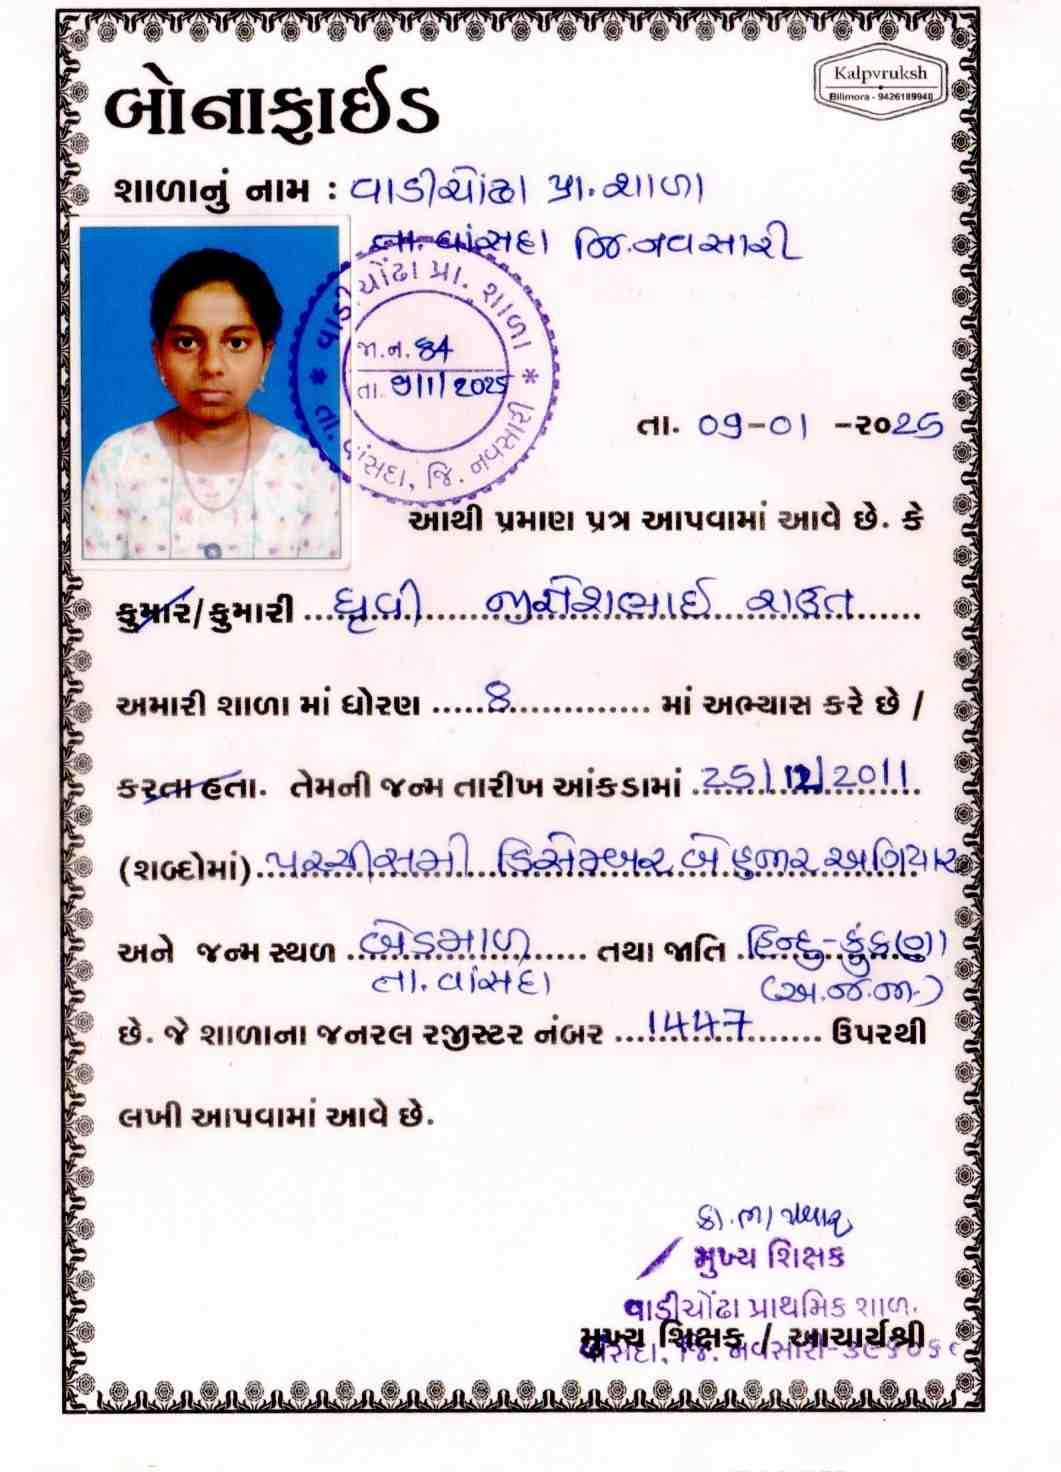 Kalpvruksh
Bilimora - 9426189940
બોનાફાઈડ
શાળાનું નામ : વાડીચોંઢા પ્રા. શાળા
તા. વાંસદા જિ. નવસારી
વાડીચોંઢા પ્રા. શાળા
જા.ન. 84
તા. 9/1/2025
* તા. વાંસદા, જિ. નવસારી *
તા. 09-01 -૨૦25
આથી પ્રમાણ પત્ર આપવામાં આવે છે. કે
કુમાર/કુમારી ...ધ્રુવી જીગ્નેશભાઈ રાઉત
અમારી શાળા માં ધોરણ .....8............. માં અભ્યાસ કરે છે /
કરતા હતા. તેમની જન્મ તારીખ આંકડામાં 25/12/2011
(શબ્દોમાં) પચ્ચીસમી ડિસેમ્બર બે હજાર અગિયાર
અને જન્મ સ્થળ ખેડમાળ તથા જાતિ હિન્દુ-કુંકણા
તા. વાંસદા (અ.જ.જા.)
છે. જે શાળાના જનરલ રજીસ્ટર નંબર ...1447....... ઉપરથી
લખી આપવામાં આવે છે.
મુખ્ય શિક્ષક
વાડીચોંઢા પ્રાથમિક શાળા.
મુખ્ય શિક્ષક / આચાર્યશ્રી
વાંસદા, જિ. નવસારી